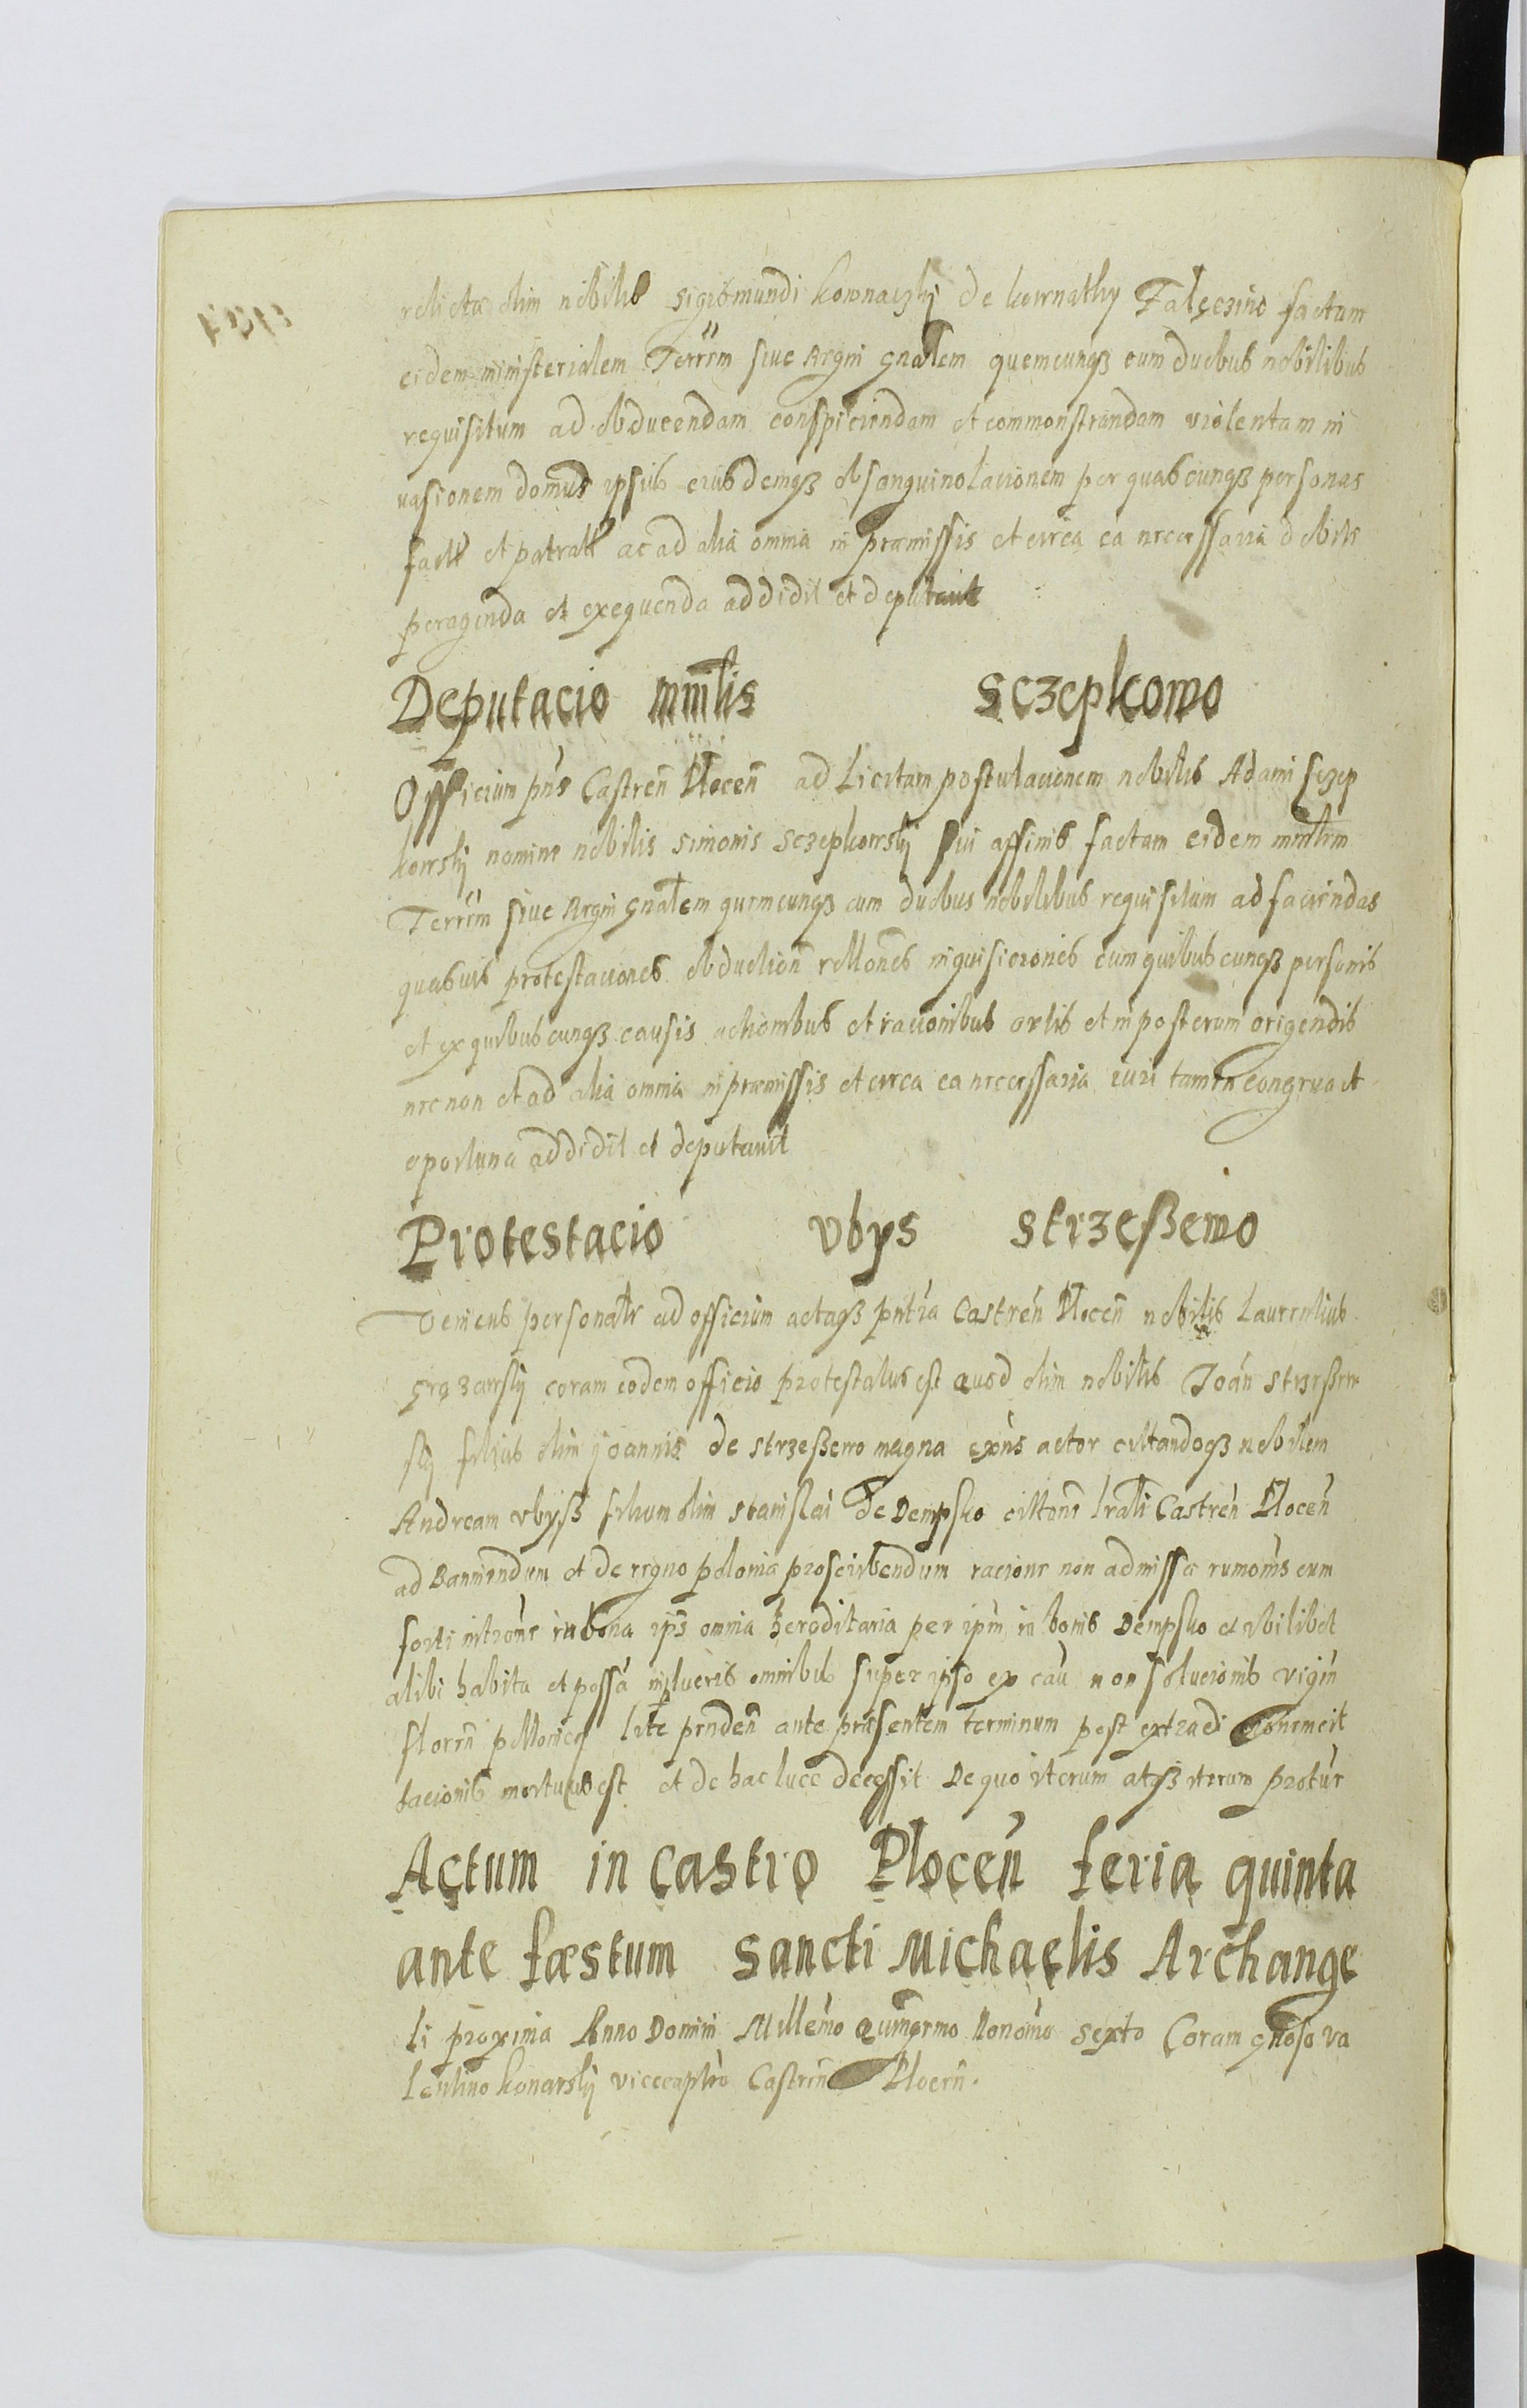 relicta olim nobilis Sigismundi Kownaczky de kownathy Falęczino factam
eidem ministerialem Terrīm siue Regni gnałem quemcunqз cum duobus nobilibus
requisitum ad obducendam conspiciendam et commonstrandam violentam in
uasionem domus ipsius eiusdemqз obsanguinolacionem per quascunqз personas
factt et patratt ac ad alia omnia in præmissis et circa ea necessaria debite
peragenda et exequenda addidit et deputauit
Deputacio mīnlis Sczepkowo
Officium pn̄s Castren̄ Plocen̄ ad Licitam postulacionem nobilis Adami Sczep
kowsky nomine nobilis Simonis Sczepkowsky sui affinis factam eidem mīnlem
Terrīm siue Regni gnałem quemcunqз cum duobus nobilibus requisitum ad faciendas
quasuis protestaciones obduction̄ rellon̄es inquisiciones cum quibuscunqз personis
et ex quibuscunqз causis actionibus et racionibus ortis et in posterum origendis
nec non et ad alia omnia in præmissis et circa ea necessaria iuri tamen congrua et
oportuna addidit et deputauit
Protestacio Vbys Strzeßewo
Veniens personałr ad officium actaqз pn̄tia Castren̄ Plocen̄ nobilis Laurentius
coram eodem officio protestatus est Quod olim nobilis Joan̄ Strzeßew
sky filius olim Joannis de Strzeßewo magna exn̄s actor citandoqз nobilem
Andream Vbyß filium olim Stanislai de Dempsko citton̄e Castren̄ Plocen̄
ad Banniendum et de regno polonia proscribendum racione non admissæ rumom̄s cum
forti intron̄e in bona ips̄ omnia hereditaria per ipm̄ in bonis Dempsko et vbilibet
alibi habita et possā super ipso ex cau non solucionis vigin̄
floren̄ pollonica lite pn̄den̄ ante præsentem terminum post extradi
tacionis mortuus est et de hac luce decessit De quo iterum atqз iterum protūr
Actum in Castro Plocen̄ feria quinta
ante fæstum Sancti Michaelis Archange
li proxima Anno Domini Millēmo Quīngmo Nonomo Sexto Coram gnōso Va
lentino Konarsky vicecaptrō Castren̄ Plocen̄.